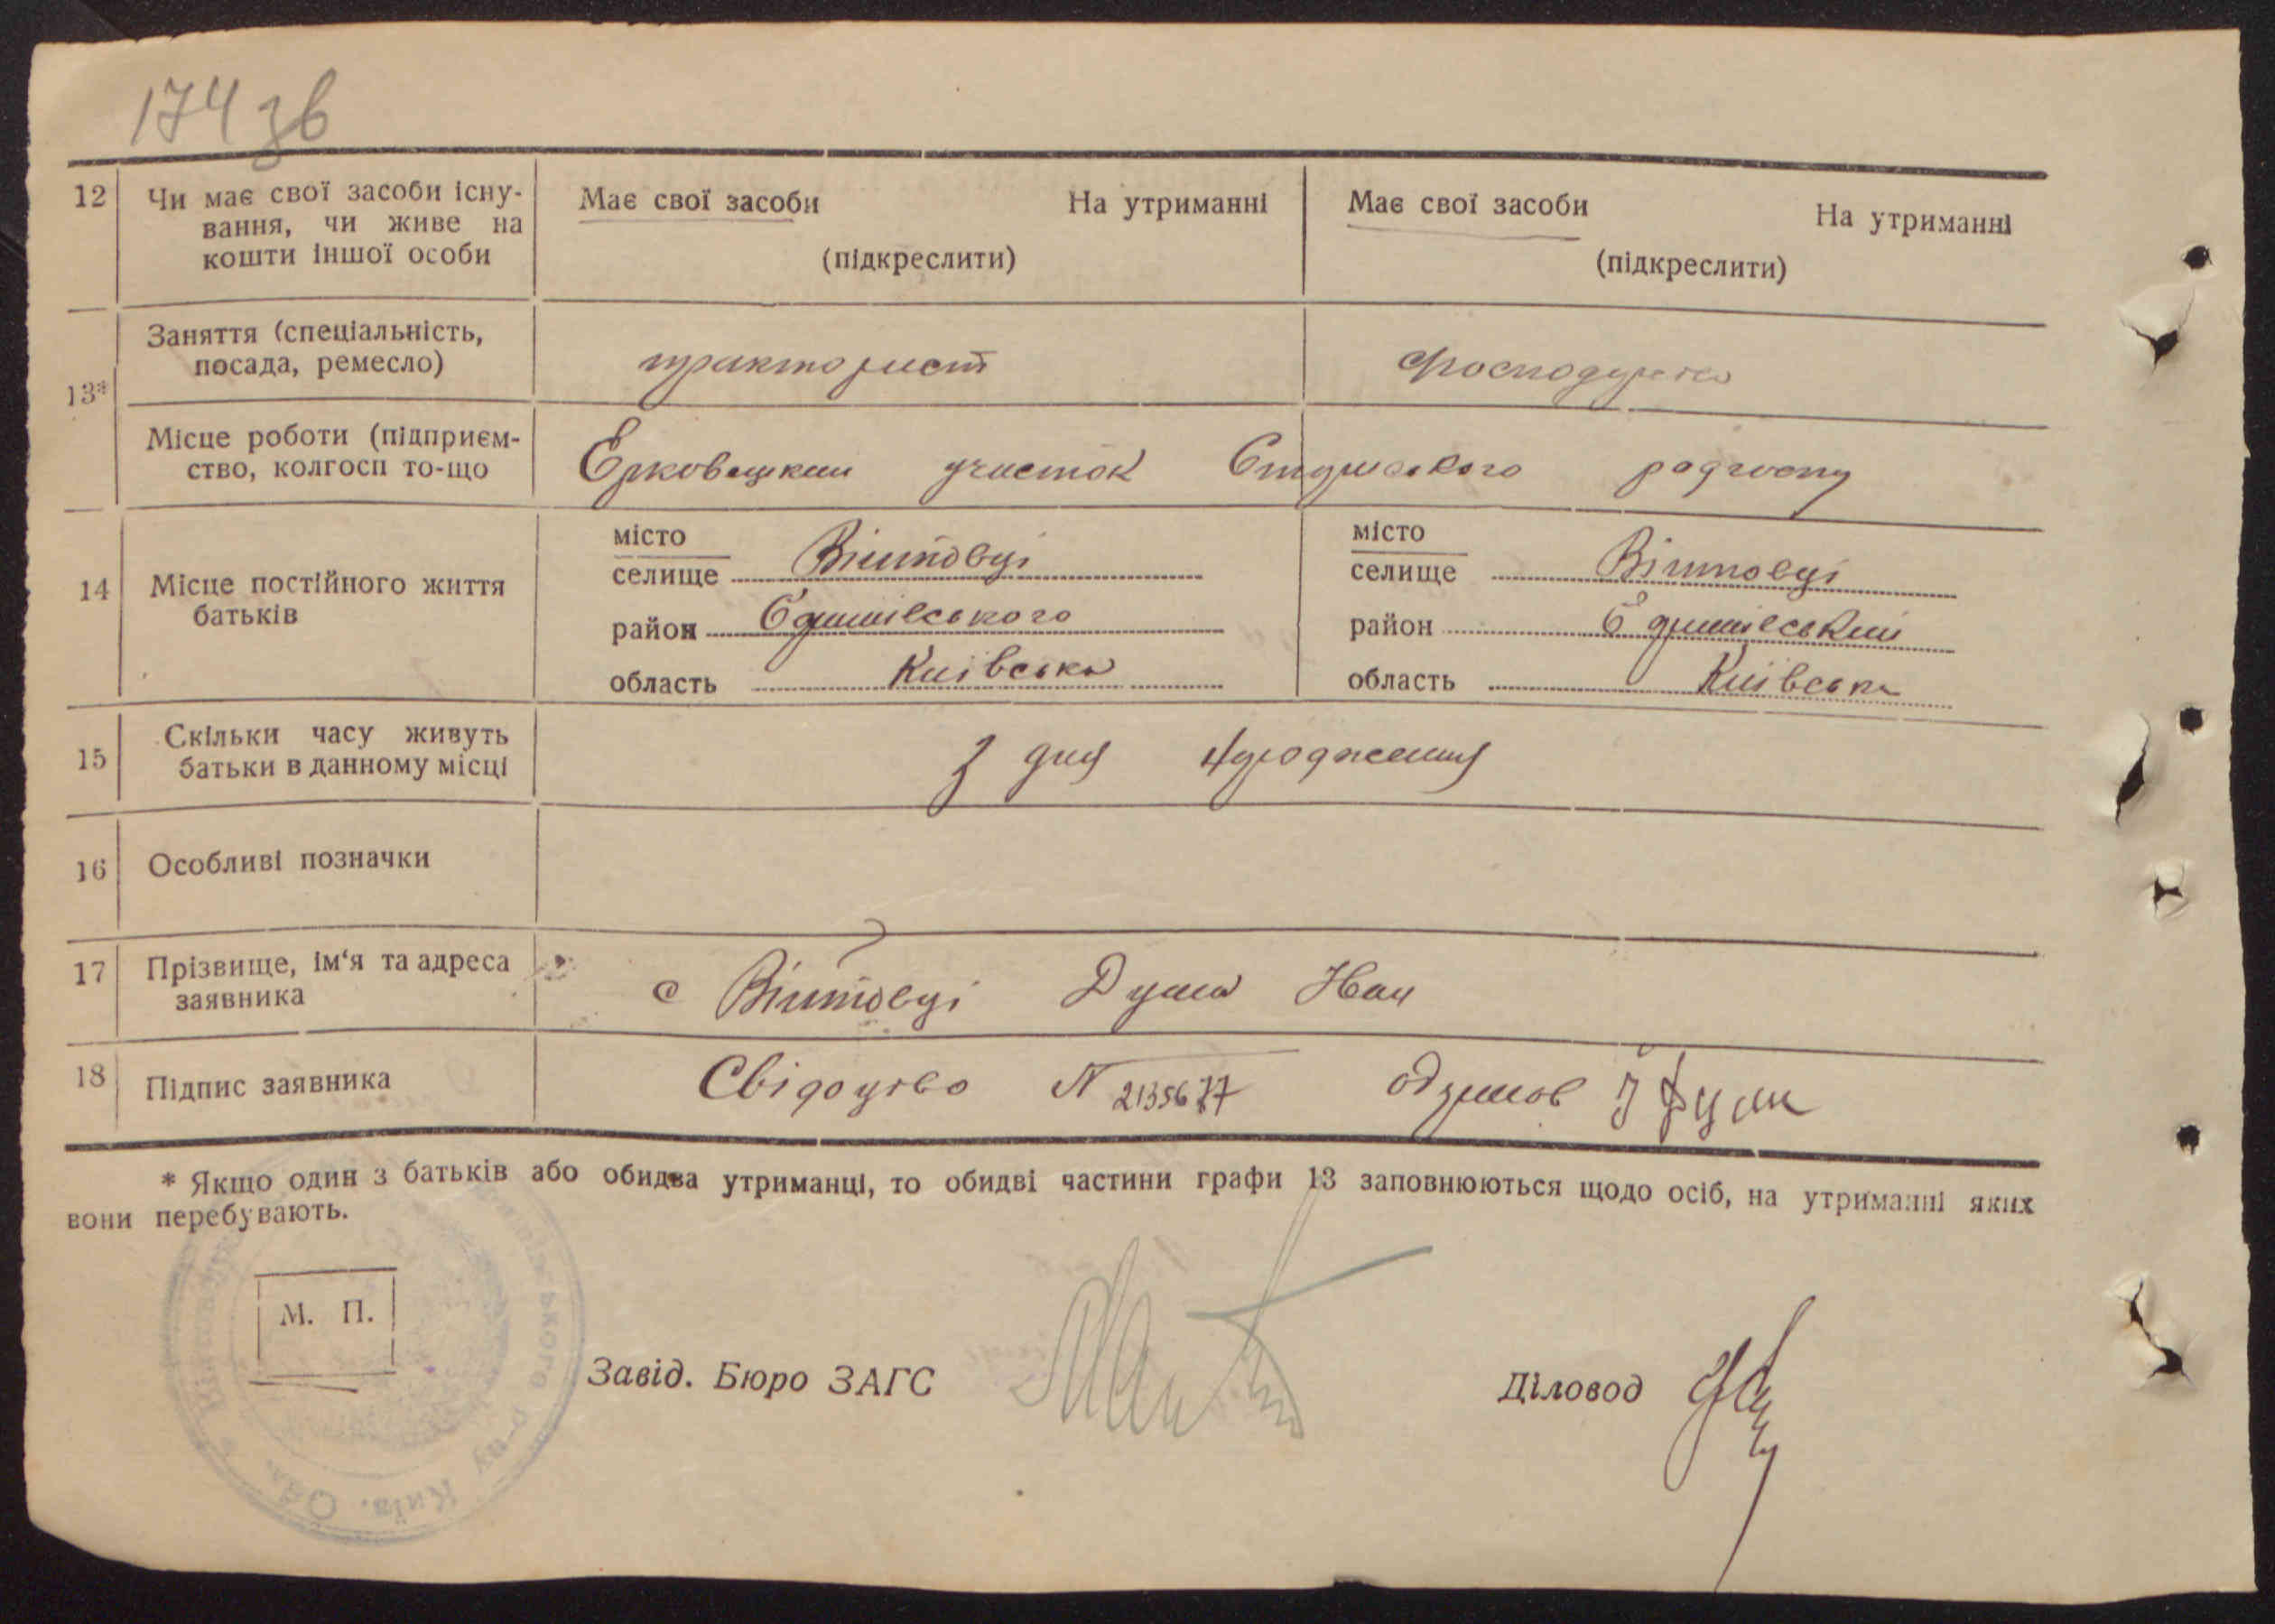 174 зв
12 Чи має свої засоби існу- Має свої засоби На утриманні Має свої засоби На утриманні
вання, чи живе на
кошти іншої особи (підкреслити) (підкреслити)
13* Заняття (спеціальність, тракторист господарка
посада, ремесло)
Місце роботи (підприєм- Ерковецкий участок радгоспу
ство, колгосп то-що
14 Місце постійного життя
батьків
місто
селище Війтовці
район
область Київська
місто
селище Війтовці
район
область Київська
15 Скільки часу живуть з дня народження
батьки в данному місці
16 Особливі позначки
17 Прізвище, ім'я та адреса с Війтовці Дума Іван
заявника
18 Підпис заявника Свідоцтво N 2135677 одержав І Дума
* Якщо один з батьків або обидва утриманці, то обидві частини графи 13 заповнюються щодо осіб, на утриманні яких
вони перебувають.
М. П.
Завід. Бюро ЗАГС Діловод
р-ну Київ. Обл.